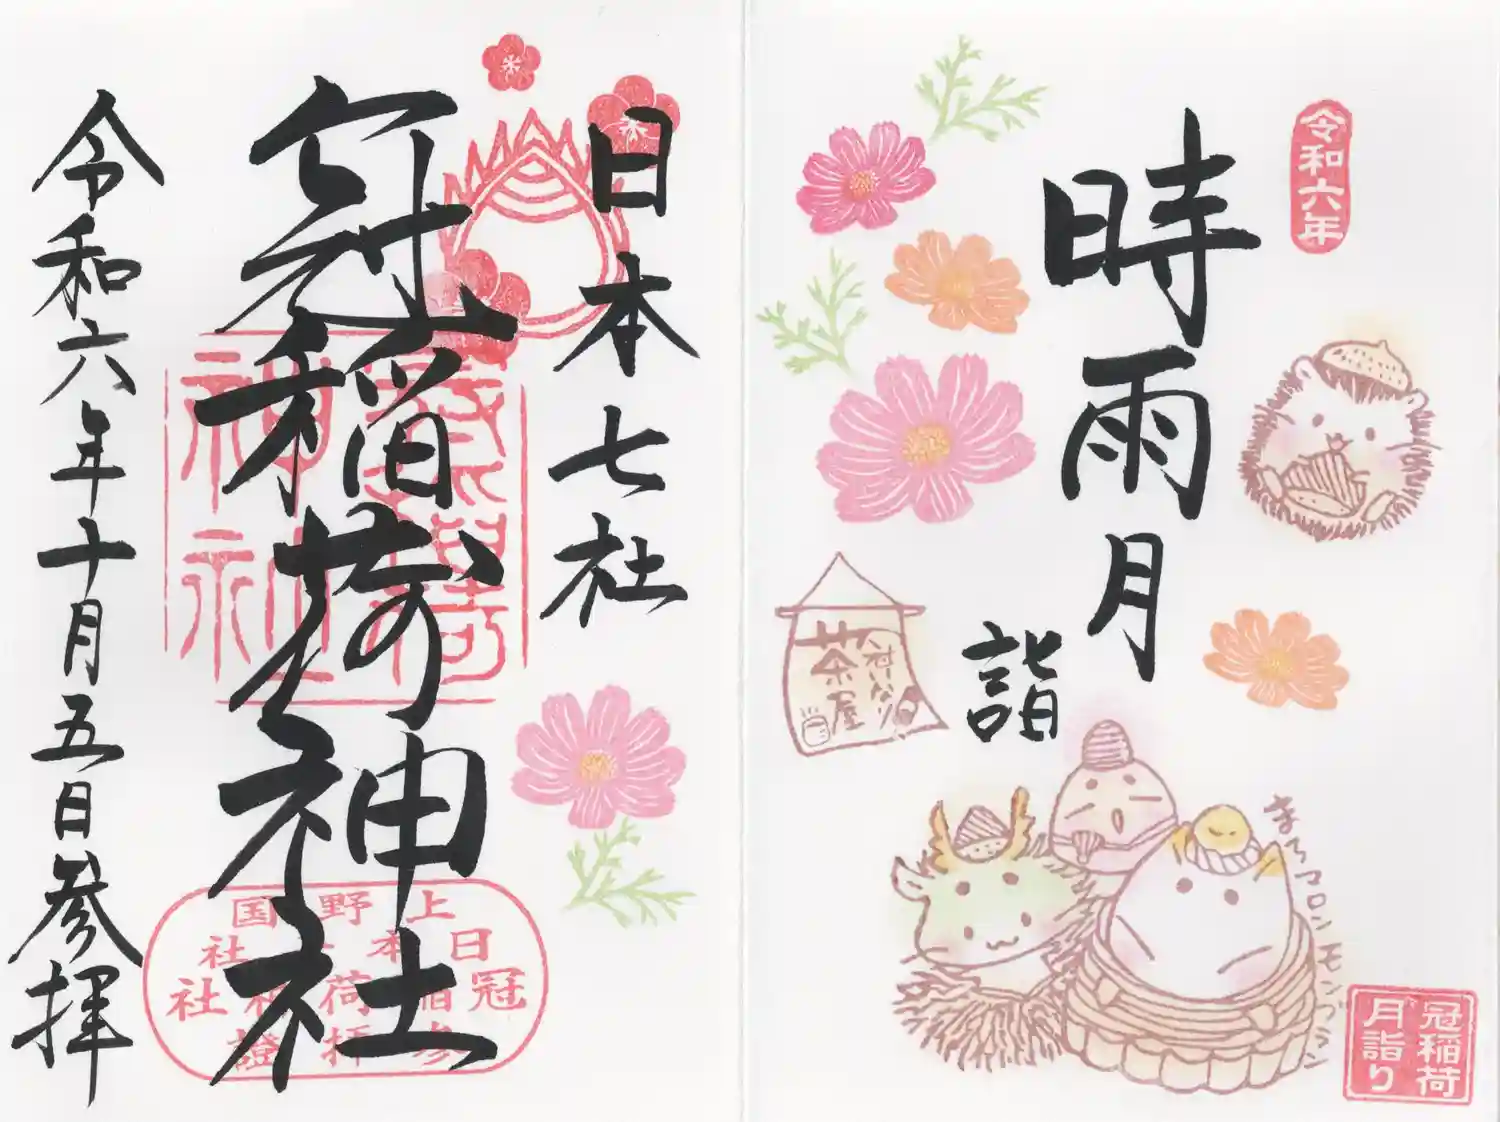 令和六年
時雨月
詣
茶屋
まろマロンモンブラン
冠稲荷
月詣り
日本七社
冠稲荷神社
令和六年十月五日参拝
上野国
日本七社
冠稲荷神社
参拝證